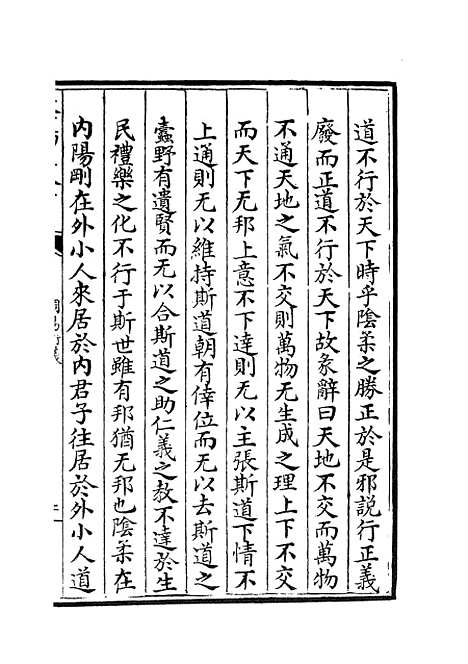 道不行於天下時乎陰柔之勝正於是邪說行正義
廢而正道不行於天下故彖辭曰天地不交而萬物
不通天地之氣不交則萬物无生成之理上下不交
而天下无邦上意不下達則无以主張斯道下情不
上通則无以維持斯道朝有倖位而无以去斯道之
蠹野有遺賢而无以合斯道之助仁義之教不達於生
民禮樂之化不行于斯世雖有邦猶无邦也陰柔在
内陽剛在外小人來居於内君子往居於外小人道
周易衍義